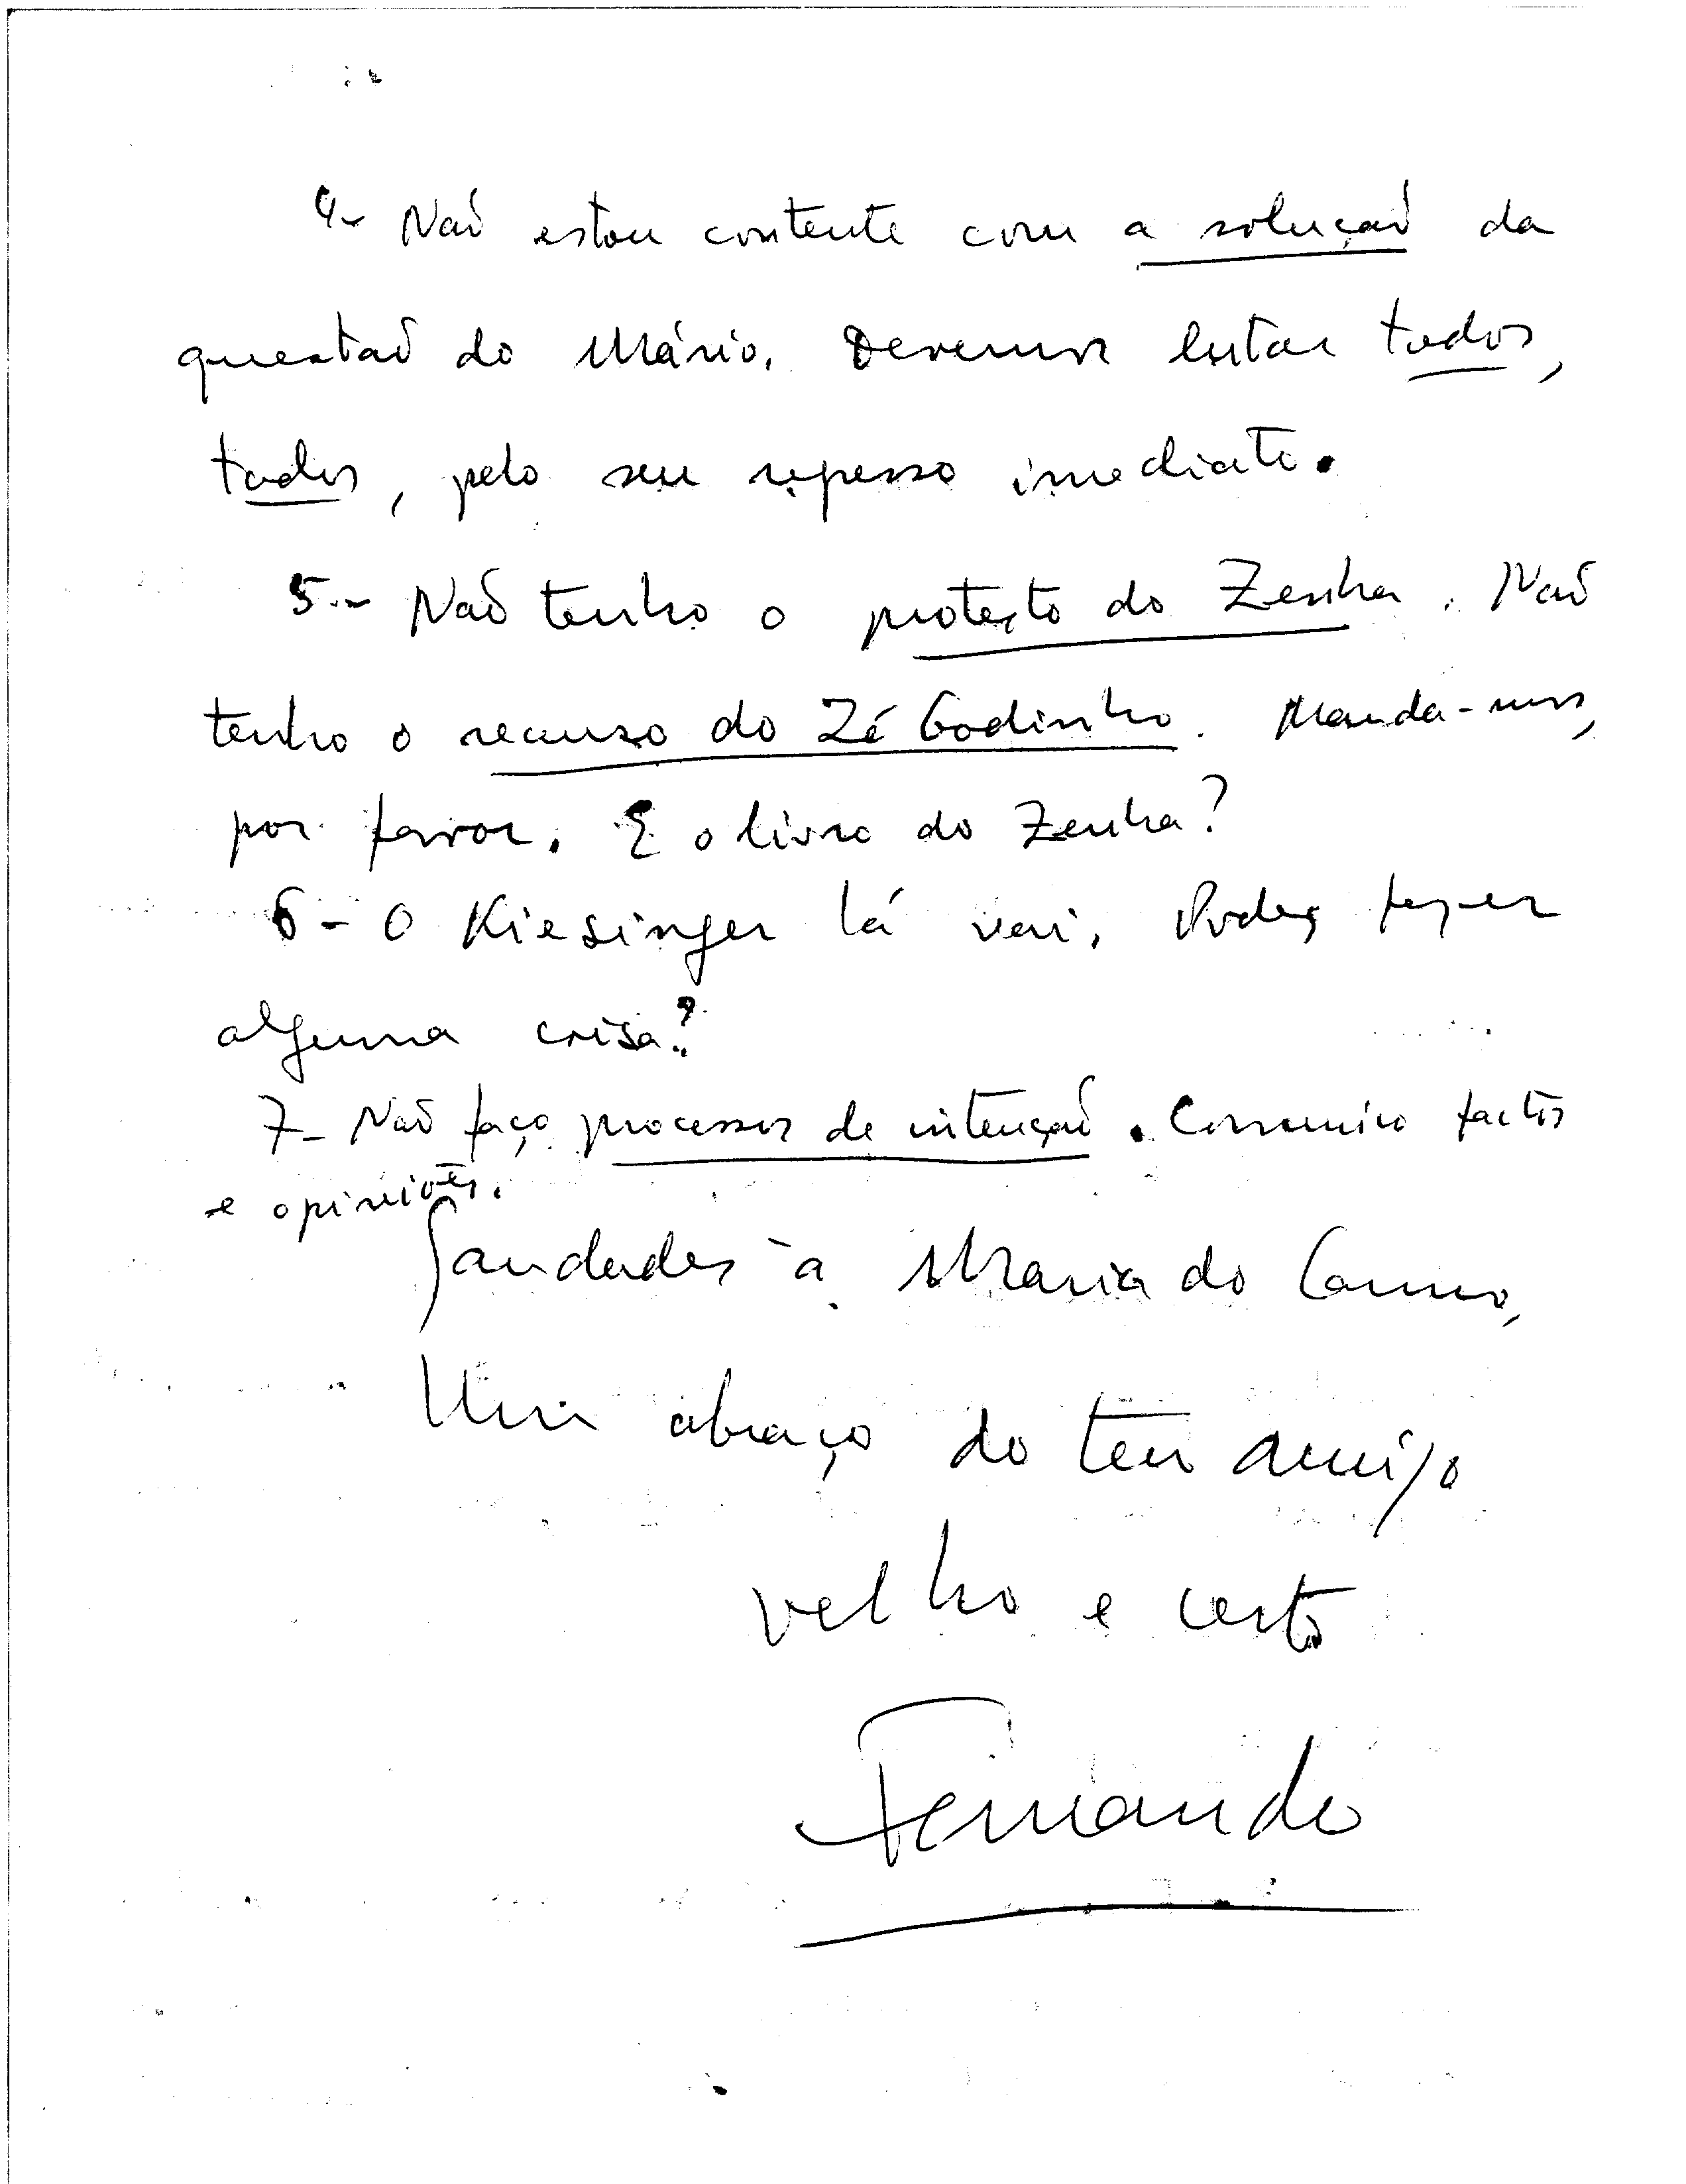 4- Não estou contente com a solução da
questão do Mário. Devemos lutar todos,
todos, pelo seu regresso imediato.
5.- Não tenho o protesto do Zenha. Não
tenho o recurso do Zé Godinho. Manda-mos,
por favor. E o livro do Zenha?
6- O Kiesinger lá vai. Podes fazer
alguma coisa?
7- Não faço processos de intenção. Comunico factos
e opiniões.
Saudades à Maria do Carmo,
Um abraço do teu amigo
velho e certo
Fernando